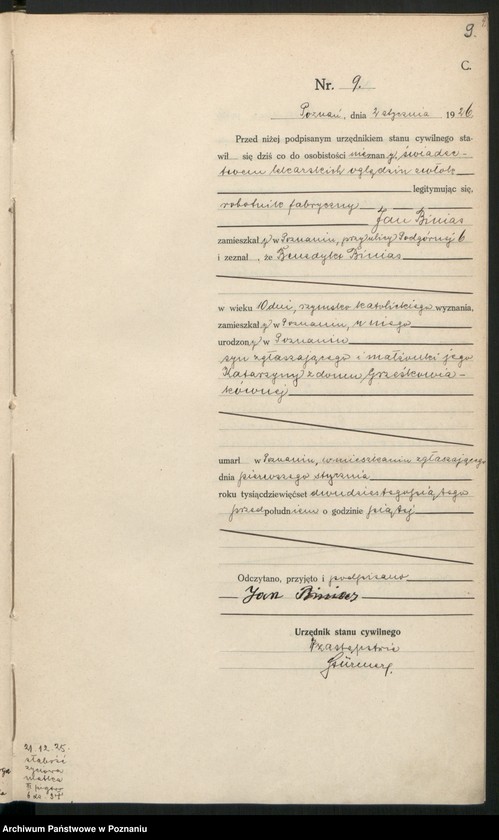 9.
C.
Nr. 9.
Poznań, dnia 2 stycznia 1926
Przed niżej podpisanym urzędnikiem stanu cywilnego sta-
wił się dziś co do osobistości nieznany, świadec-
twem lekarskich oględzin zwłok
legitymując się,
robotnik fabryczny
Jan Binias
zamieszkały w Poznaniu, przy ulicy Podgórnej 6
i zeznał, że Benedykt Binias
w wieku 10 dni, rzymsko katolickiego wyznania,
zamieszkały w Poznaniu, u niego
urodzony w Poznaniu
syn zgłaszającego i małżonki jego
Katarzyny z domu Grześkowia-
kównej
umarł w Poznaniu, w mieszkaniu zgłaszającego
dnia pierwszego stycznia
roku tysiącdziewięćset dwudziestego piątego
przedpołudniem o godzinie piątej
Odczytano, przyjęto i podpisano
Jan Binias
Urzędnik stanu cywilnego
W zastępstwie
Stürmer
21.12.25.
słabość
matka
Archiwum Państwowe w Poznaniu